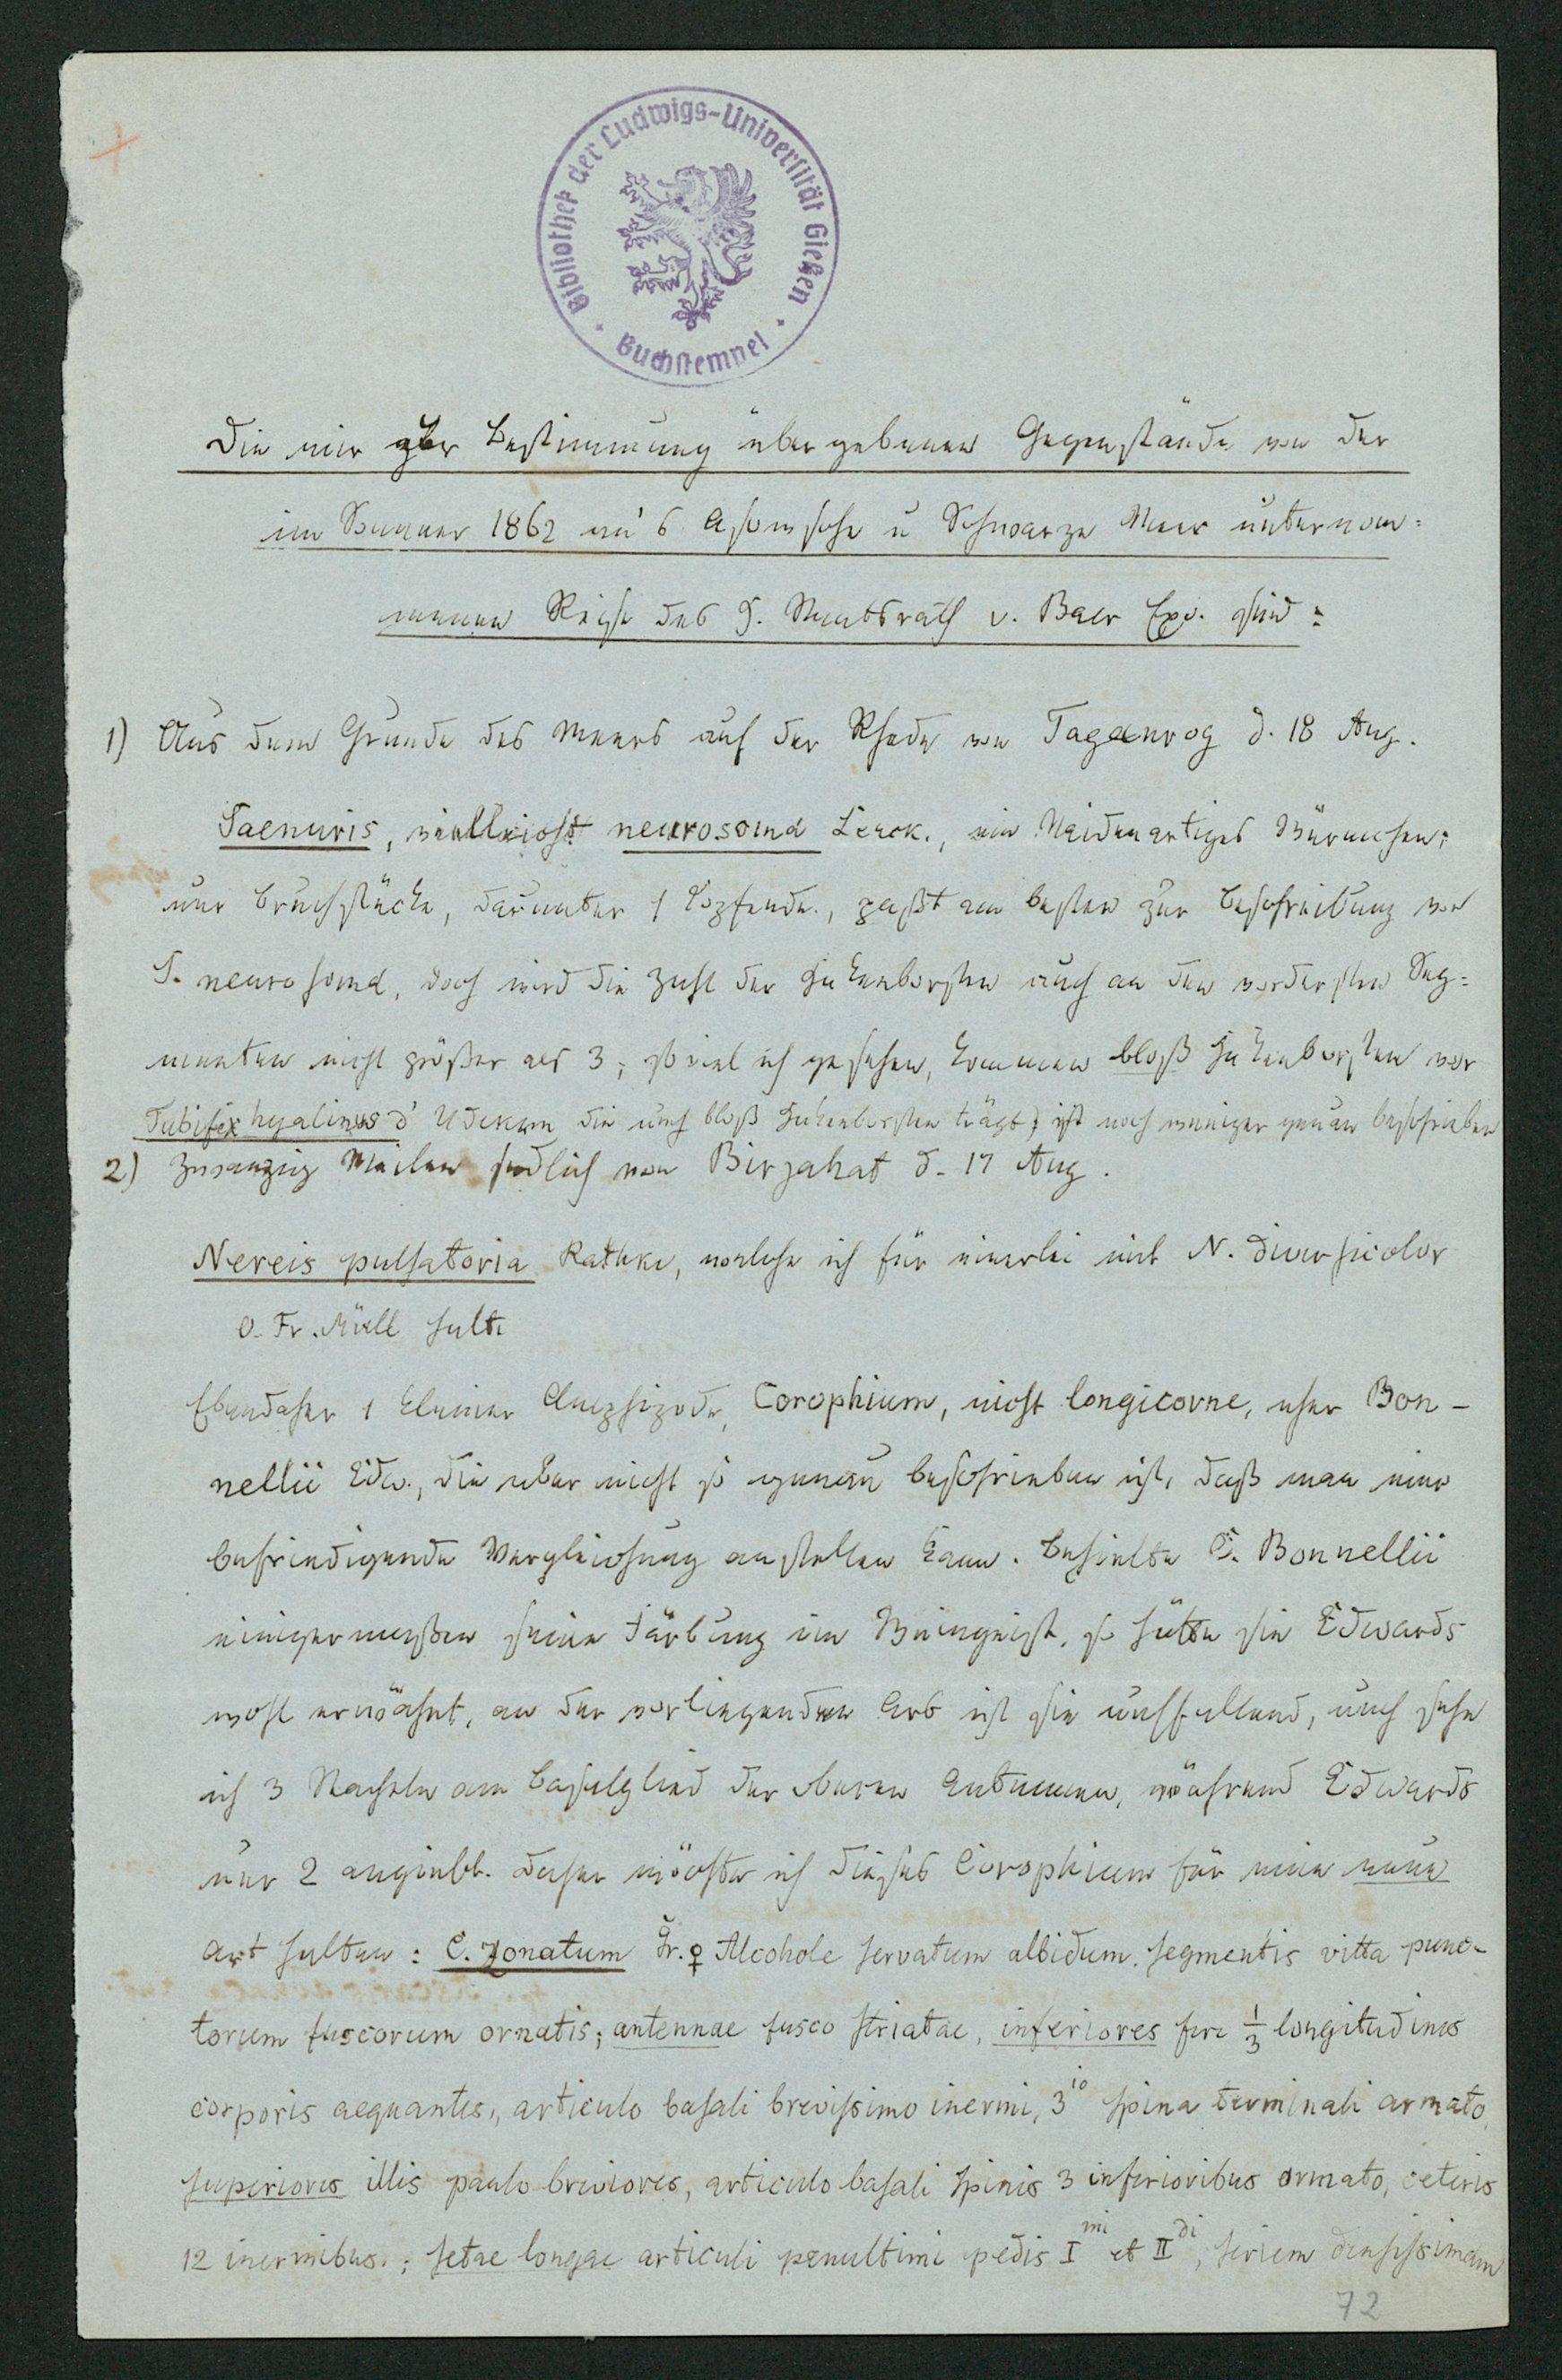 Bibliothek der Ludwigs-Universität Gießen
Buchstempel
Die mir zur Bestimmung übergebenen Gegenstände von der
im Sommer 1862 an's Asowsche u Schwarze Meer unternom=
menen Reise des H. Staatsrath v. Baer Exc. sind:
1) Aus dem Grunde des Meers auf der Rhede von Taganrog d. 18 Aug.
Saenuris, vielleicht neurosoma Leuck., ein Naidenartiges Würmchen;
nur Bruchstücke, darunter 1 Kopfende, paßt am besten zur Beschreibung von
S. neurosoma, doch wird die Zahl der Hakenborsten auch an den vordersten Seg=
menten nicht größer als 3; so viel ich gesehen, kommen bloß Hakenborsten vor
Tubifex hyalinus d'Udekem die auch bloß Hakenborsten trägt, ist noch weniger genau beschrieben
2) Zwanzig Meilen südlich von Birjakat d. 17 Aug.
Nereis pulsatoria Rathke, welche ich für einerlei mit N. diversicolor
O. Fr. Müll halte
Ebendaher 1 kleiner Amphipode, Corophium, nicht longicorne, eher Bon-
nellii Edw., die aber nicht so genau beschrieben ist, daß man eine
befriedigende Vergleichung anstellen kann. Behielte C. Bonnellii
einigermaßen seine Färbung im Weingeist, so hätte sie Edwards
wohl erwähnt, an der vorliegenden Art ist sie auffallend, auch sehe
ich 3 Stacheln am Basalglied der oberen Antennen, während Edwards
nur 2 angiebt. Daher möchte ich dieses Corophium für eine neue
Art halten: C. zonatum Gr. ♀ Alcohole servatum albidum, segmentis vitta punc-
torum fuscorum ornatis; antennae fusco striatae, inferiores fere 1/3 longitudinis
corporis aequantes, articulo basali brevissimo inermi, 3io spina terminali armato,
superiores illis paulo breviores, articulo basali spinis 3 inferioribus armato, ceteris
12 inermibus; setae longae articuli penultimi pedis Imi et IIdi, seriem densissimam
72